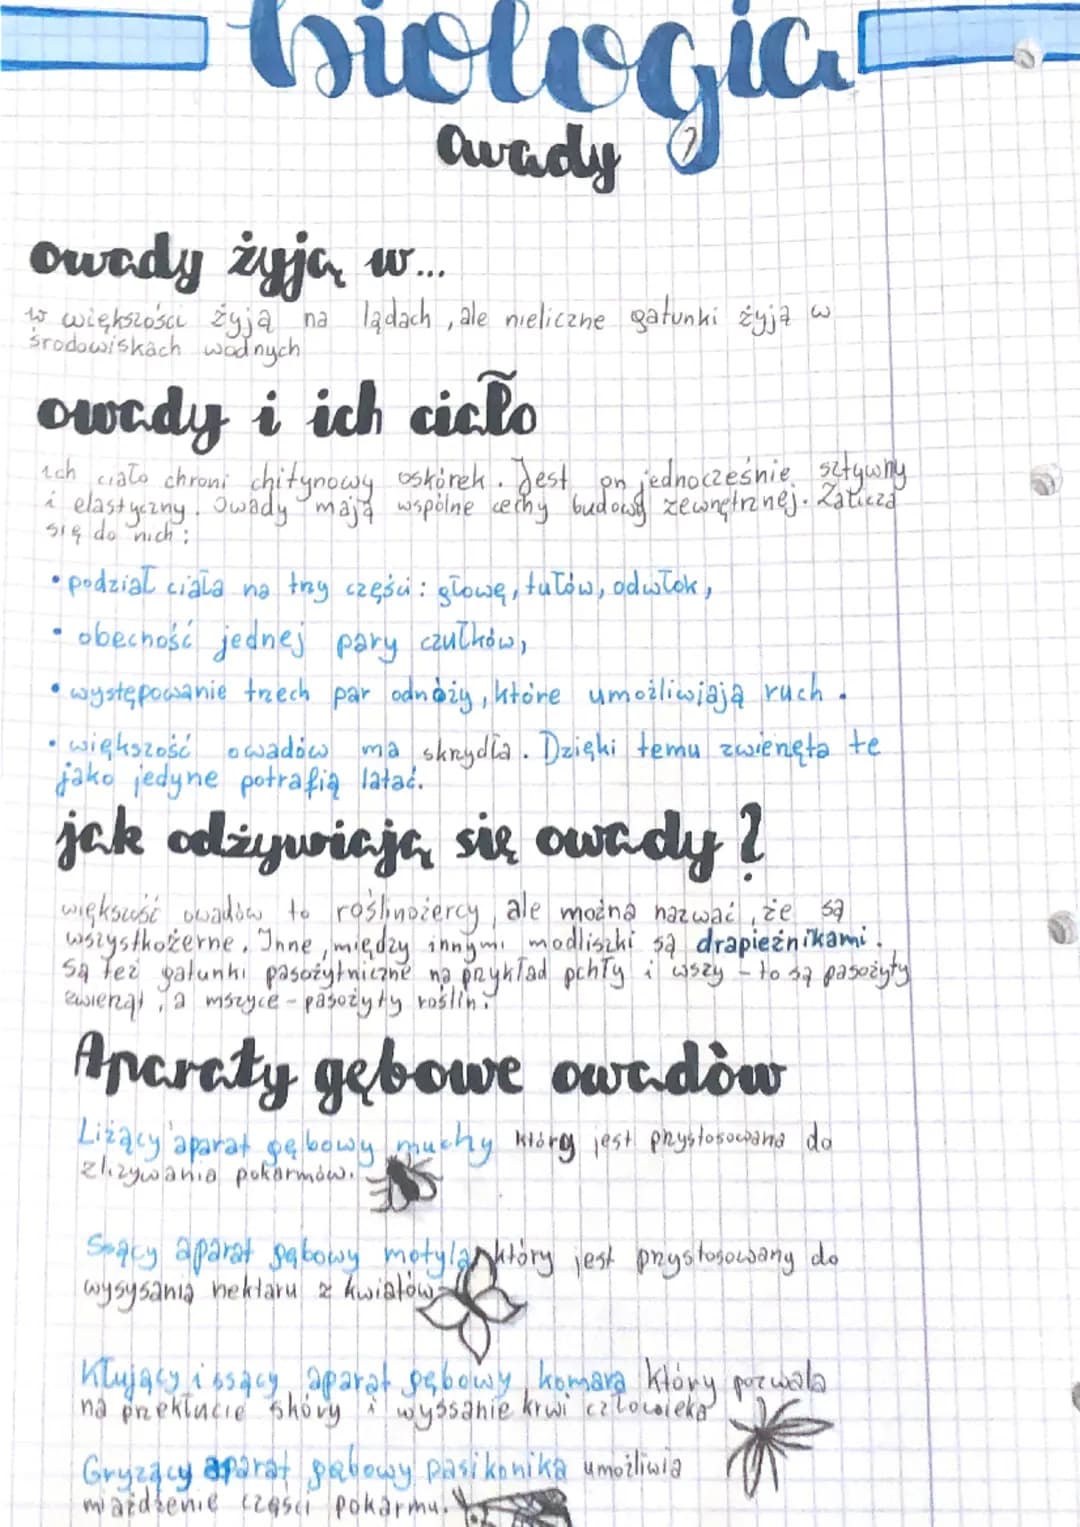 biologia
owady
owady żyją w...
w większości żyją na lądach, ale nieliczne gatunki żyją w
środowiskach wodnych
owady i ich ciało
ich ciało chroni chitynowy oskórek. Jest on jednocześnie sztywny
i elastyczny. Owady mają wspólne cechy budowy zewnętrznej. Zalicza
się do nich:
• podział ciała na trzy części: głowę, tułów, odwłok,
• obecność jednej pary czułków,
• występowanie trzech par odnóży, które umożliwiają ruch.
• większość owadów ma skrzydła. Dzięki temu zwierzęta te
jako jedyne potrafią latać.
jak odżywiają się owady?
większość owadów to roślinożercy, ale można nazwać, że są
wszystkożerne. Inne, między innymi modliszki są drapieżnikami.
Są też gatunki pasożytnicze na przykład pchły i wszy - to są pasożyty
zwierząt, a mszyce - pasożyty roślin.
Aparaty gębowe owadów
Liżący aparat gębowy muchy który jest przystosowana do
zlizywania pokarmów.
Ssący aparat gębowy motyla który jest przystosowany do
wysysania nektaru z kwiatów
Kłujący i ssący aparat gębowy komara który pozwala
na przekłucie skóry i wyssanie krwi człowieka
Gryzący aparat gębowy pasikonika umożliwia
miażdżenie części pokarmu.